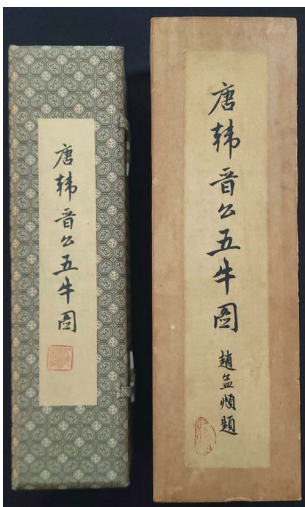 唐韩晋公五牛图
唐韩晋公五牛图
趙孟頫題